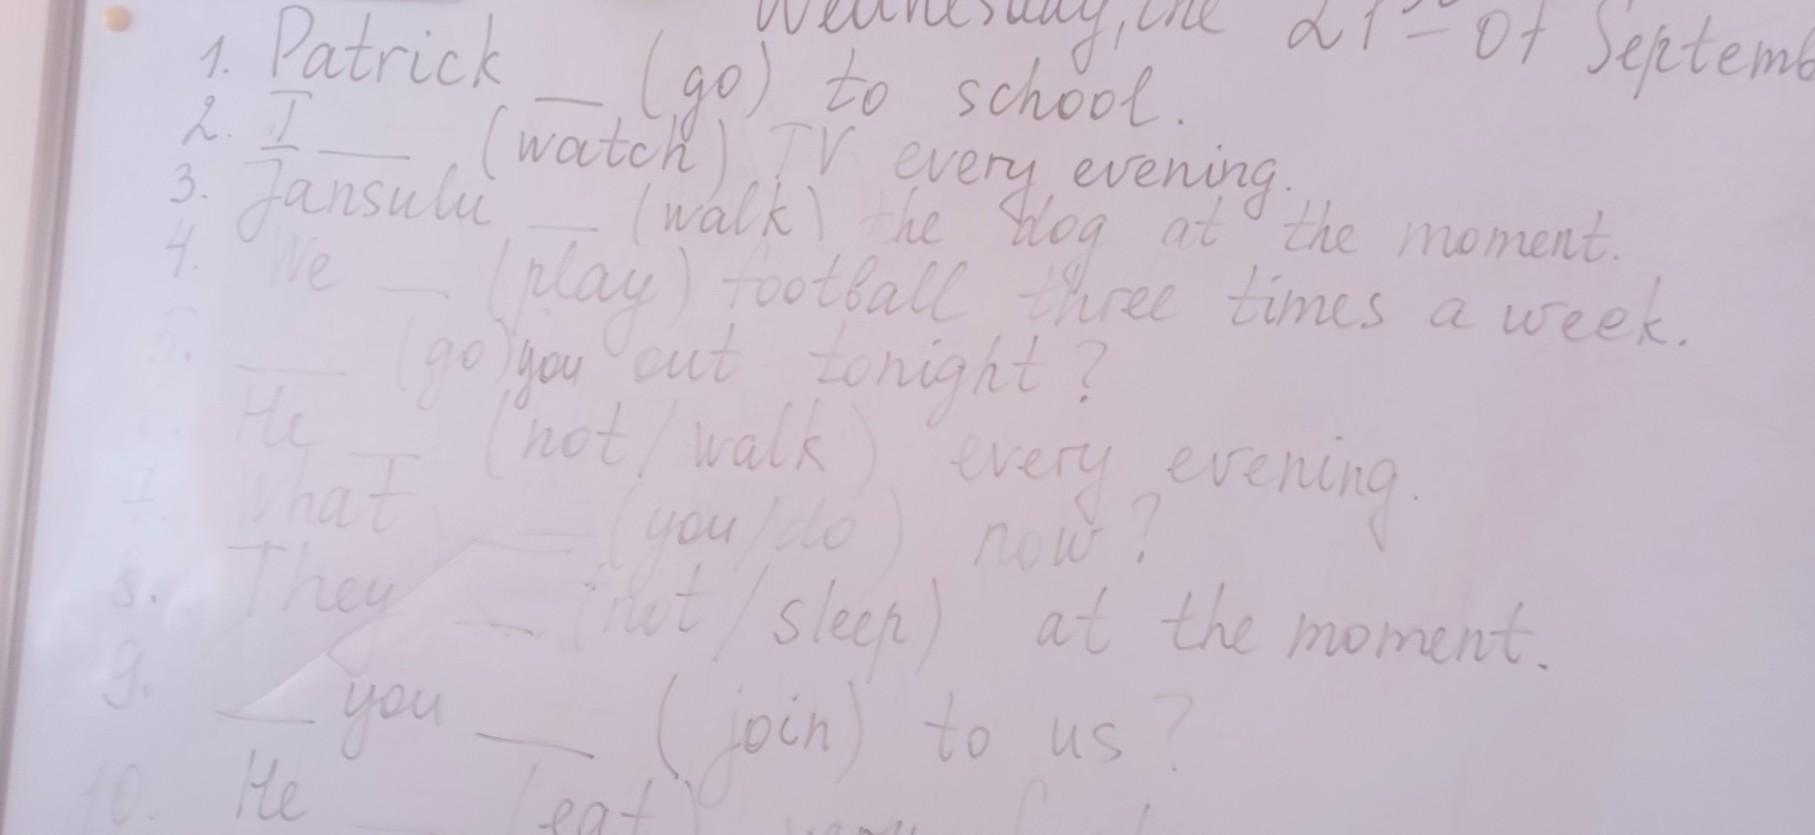 Wednesday, the 21st of Septemb
1. Patrick __ (go) to school.
2. I ___ (watch) TV every evening.
3. Jansulu __ (walk) the dog at the moment.
4. We __ (play) football three times a week.
5. ___ (go) you out tonight?
He __ (not/walk) every evening.
7. What __ (you/do) now?
8. They __ (not/sleep) at the moment.
9. __ you __ (join) to us?
10. He __ (eat)